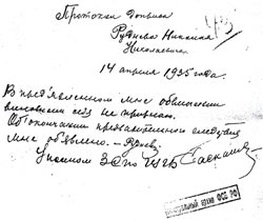 Протокол допроса
Рудника Николая
Николаевича
14 апреля 1935 года.
В предъявленном мне обвинении
виновным себя не признаю.
Об окончании предварительного следствия
мне объявлено.
архив ФСБ РФ